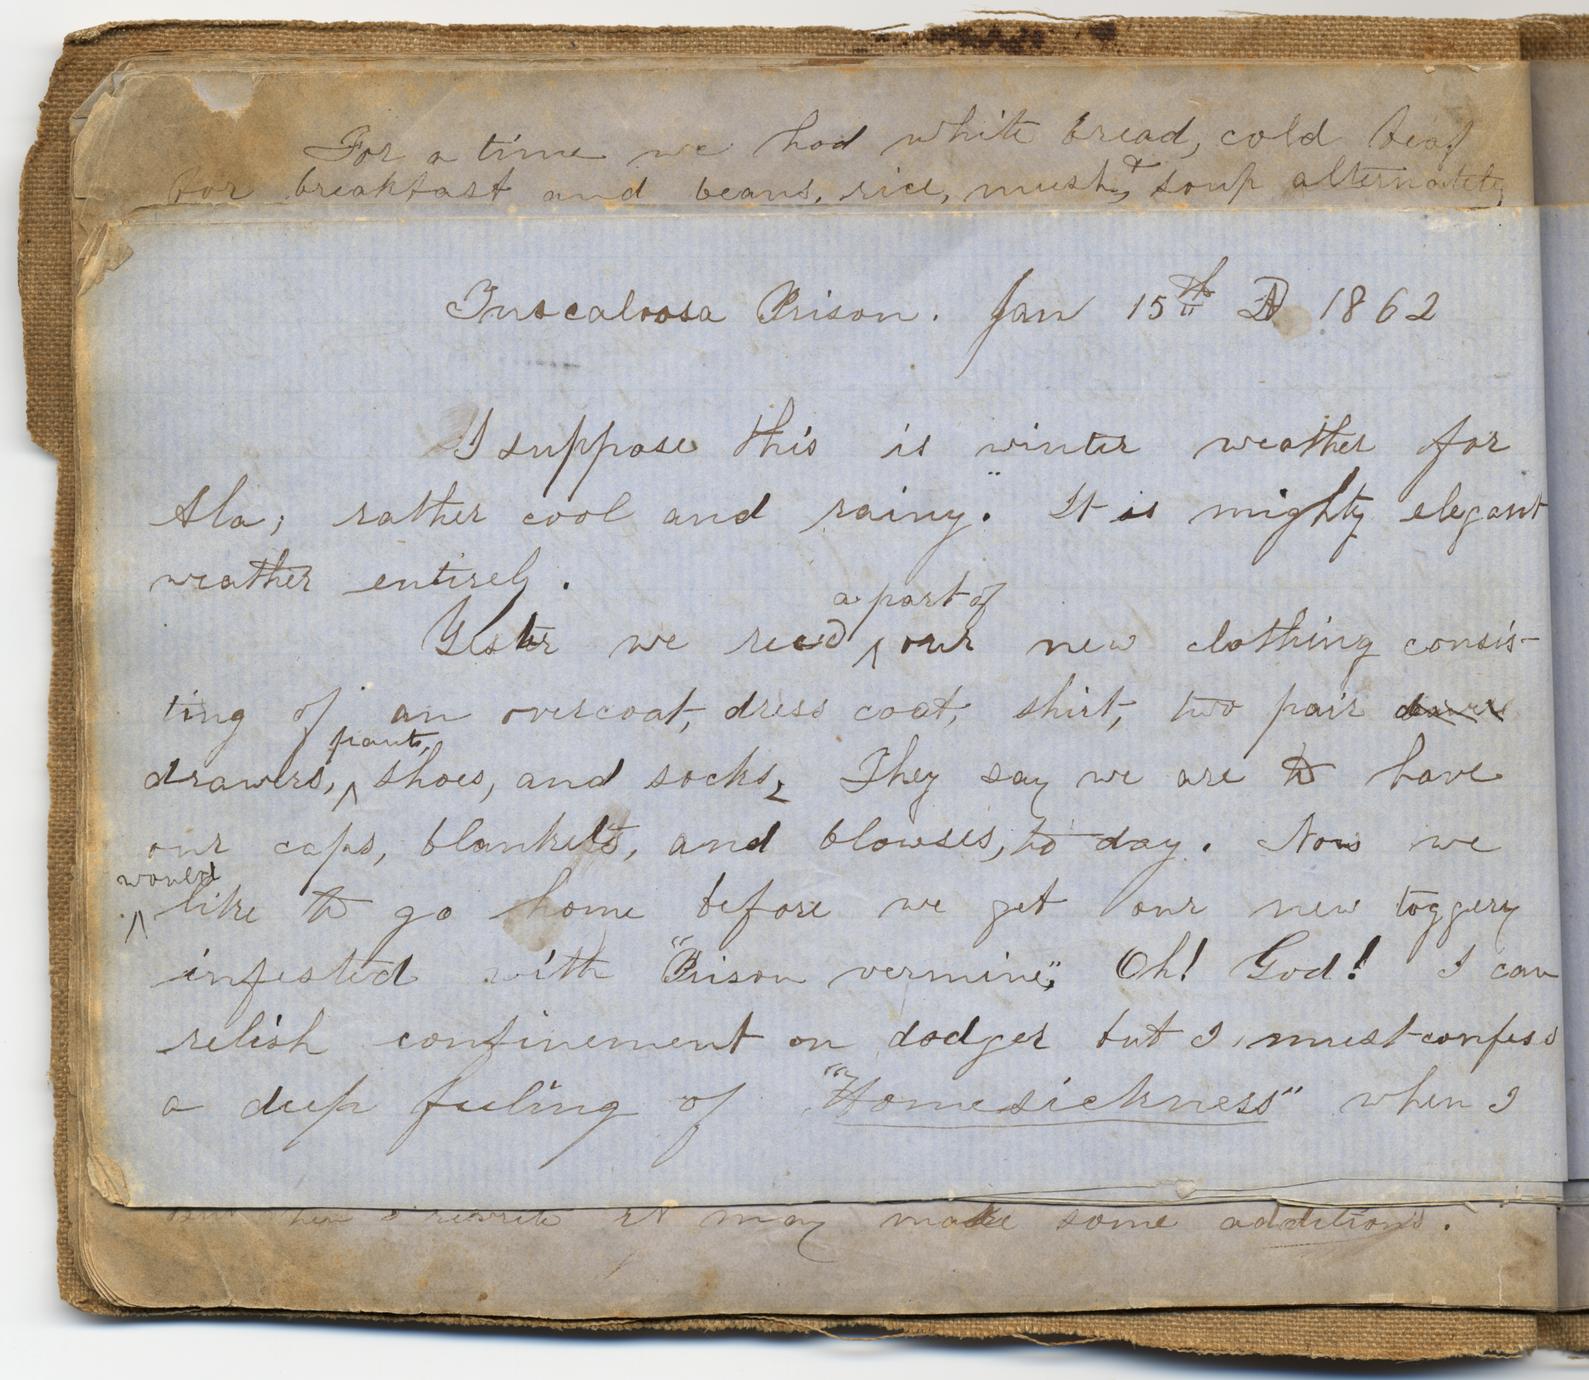 For a time we had white bread, cold beaf
for breakfast and beans, rice, mush, & soup alternately
Tuscaloosa Prison. Jan 15th AD 1862
I suppose this is winter weather for
Ala; rather cool and rainy." It is mighty elegant
weather entirely.
a part of
Yester we recd ^ our new clothing consis-
ting of, an overcoat, dress coat, shirt, two pair
pants,
drawers, ^ shoes, and socks, They say we are to have
our caps, blankets, and blowses, to day. Now we
would
^ like to go home before we get our new toggery
infested with "Prison vermine", Oh! God! I can
relish confinement on dodger but I must confess
a deep feeling of "Homesickness" when I
rewrite it may make some additions.